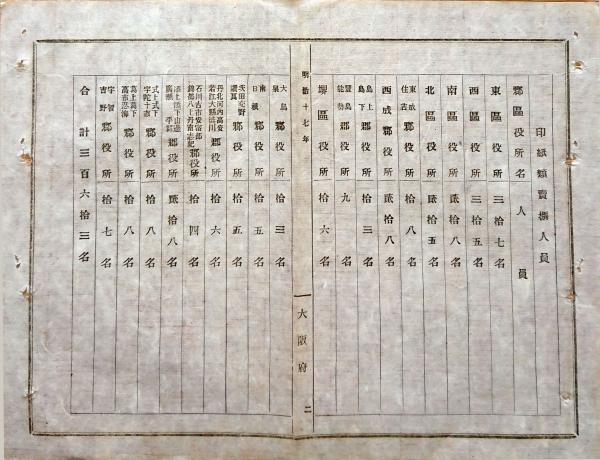 印紙類賣捌人員
郡區役所名 人員
東區役所 三拾七名
西區役所 三拾五名
南區役所 貳拾八名
北區役所 貳拾五名
東成住吉郡役所 拾八名
西成郡役所 貳拾八名
島上島下郡役所 拾三名
豐島能勢郡役所 九名
堺區役所 拾六名
明治十七年
大阪府 二
大鳥泉郡役所 拾三名
南日根郡役所 拾五名
茨田交野讃良郡役所 拾五名
丹北河內高安若江大縣澁川郡役所 拾六名
石川古市安宿部錦部八上丹南志紀郡役所 拾四名
添上添下山邊廣瀨平群郡役所 貳拾八名
式上式下宇陀十市郡役所 拾八名
葛上葛下高市忍海郡役所 拾八名
宇智吉野郡役所 拾七名
合計三百六拾三名